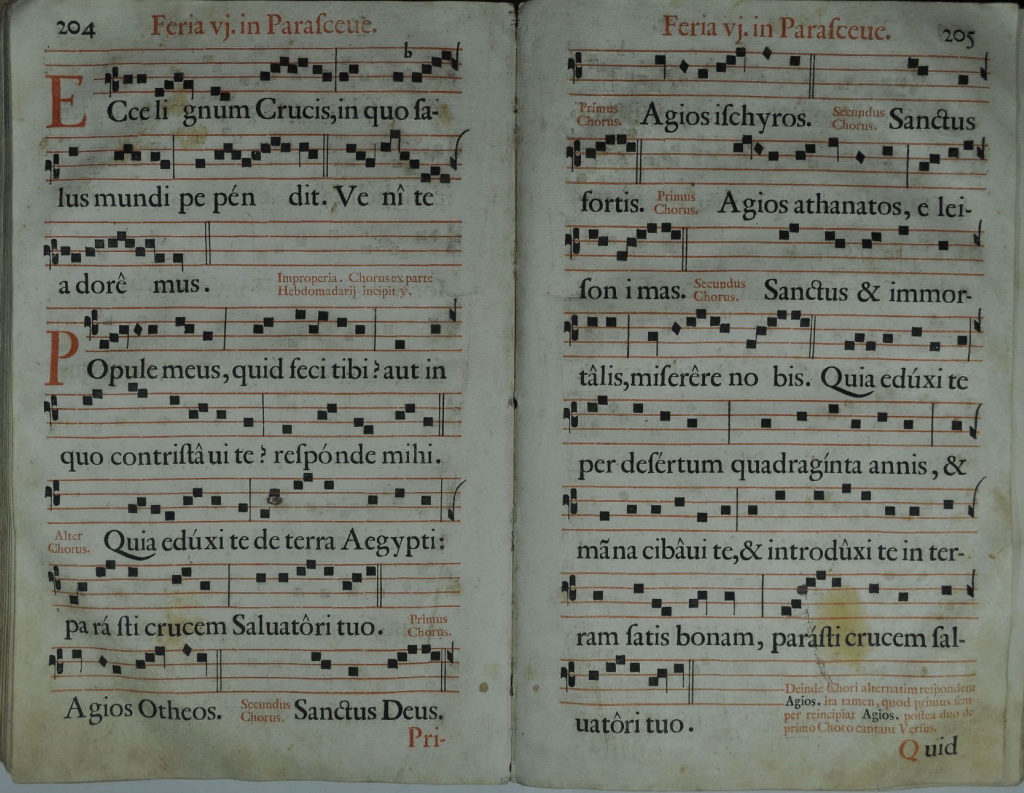 204 Feria vj. in Paraſceue.
ECce li gnum Crucis, in quo ſa-
lus mundi pe pén dit. Ve nî te
a dorê mus.
Improperia. Chorus ex parte
Hebdomadarij incipit ℣.
POpule meus, quid feci tibi? aut in
quo contriſtâ ui te? reſpónde mihi.
Alter
Chorus.
Quia edúxi te de terra Aegypti:
pa rá ſti crucem Saluatôri tuo.
Primus
Chorus.
Agios Otheos.
Secundus
Chorus.
Sanctus Deus.
Pri-
Feria vj. in Paraſceue. 205
Primus
Chorus.
Agios iſchyros.
Secundus
Chorus.
Sanctus
fortis.
Primus
Chorus.
Agios athanatos, e lei-
ſon i mas.
Secundus
Chorus.
Sanctus & immor-
tâlis, miſerêre no bis. Quia edúxi te
per deſértum quadragínta annis, &
mãna cibâui te, & introdûxi te in ter-
ram ſatis bonam, paráſti crucem ſal-
uatôri tuo.
Deinde Chori alternatim reſpondent
Agios. ita tamen, quod primus ſem-
per reincipiat Agios. poſtea duo de
primo Choro cantant Verſus.
Quid